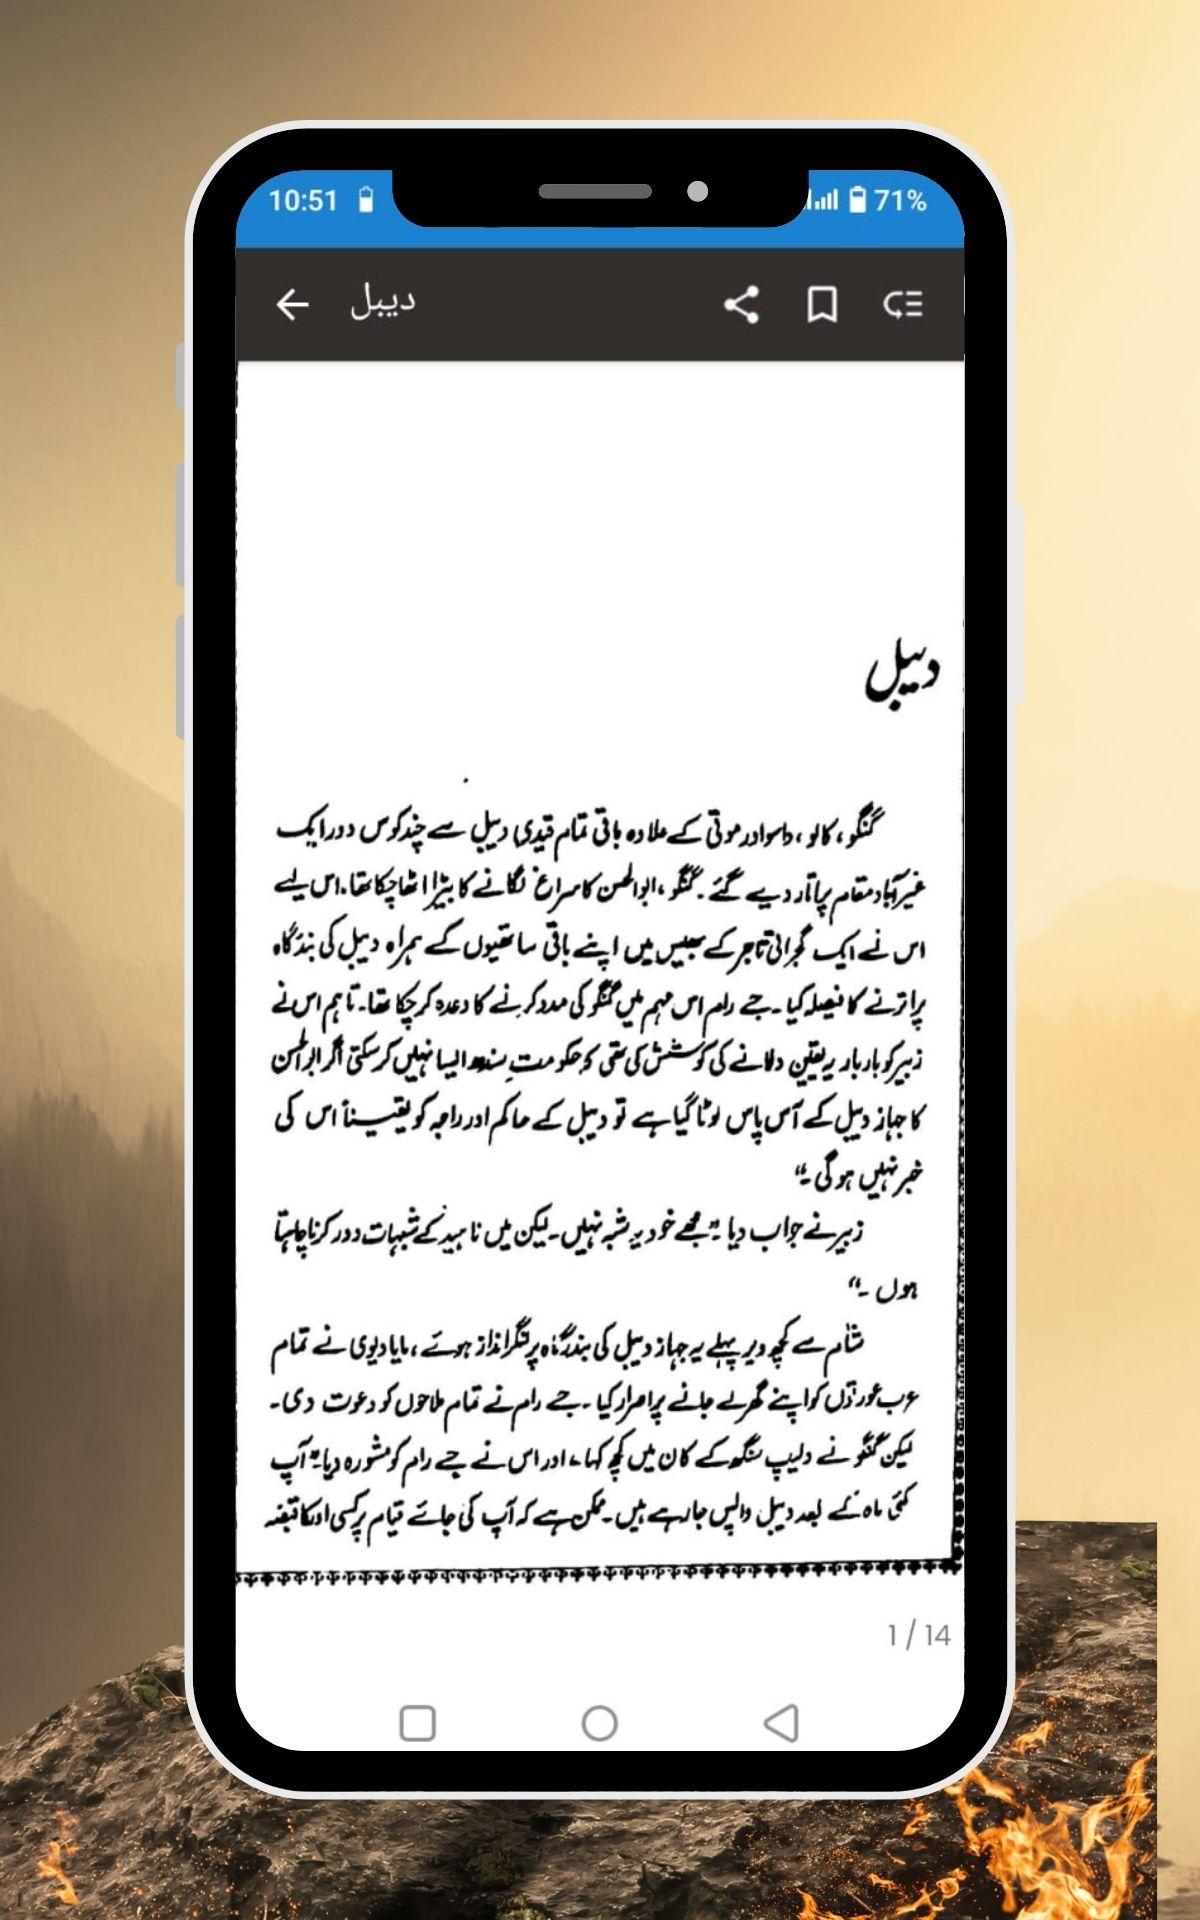 10:51
71%
دیبل
دیبل
گنگو، کالو، داسو اور موتی کے علاوہ باقی تمام قیدی دیبل سے چند کوس دور ایک
غیر آباد مقام پر اتار دیے گئے ۔ گنگو ، ابوالحسن کا سراغ لگانے کا بیڑا اٹھا چکا تھا۔ اس لیے
اس نے ایک گجراتی تاجر کے بھیس میں اپنے باقی ساتھیوں کے ہمراہ دیبل کی بندرگاہ
پر اترنے کا فیصلہ کیا ۔ جے رام اس مہم میں گنگو کی مدد کرنے کا وعدہ کر چکا تھا۔ تاہم اس نے
زبیر کو بار بار یہ یقین دلانے کی کوشش کی تھی کہ حکومتِ سندھ ایسا نہیں کر سکتی اگر ابوالحسن
کا جہاز دیبل کے آس پاس لوٹا گیا ہے تو دیبل کے حاکم اور راجہ کو یقیناً اس کی
خبر نہیں ہو گی ۔“
زبیر نے جواب دیا ۔”مجھے خود یہ شبہ نہیں ۔ لیکن میں ناہید کے شبہات دور کرنا چاہتا
ہوں ۔“
شام سے کچھ دیر پہلے یہ جہاز دیبل کی بندرگاہ پر لنگر انداز ہوئے ، مایا دیوی نے تمام
عرب عورتوں کو اپنے گھر لے جانے پر اصرار کیا ۔ جے رام نے تمام ملاحوں کو دعوت دی۔
لیکن گنگو نے دلیپ سنگھ کے کان میں کچھ کہا ، اور اس نے جے رام کو مشورہ دیا ۔”آپ
کئی ماہ کے بعد دیبل واپس جا رہے ہیں ۔ ممکن ہے کہ آپ کی جائے قیام پر کسی اور کا قبضہ
1 / 14